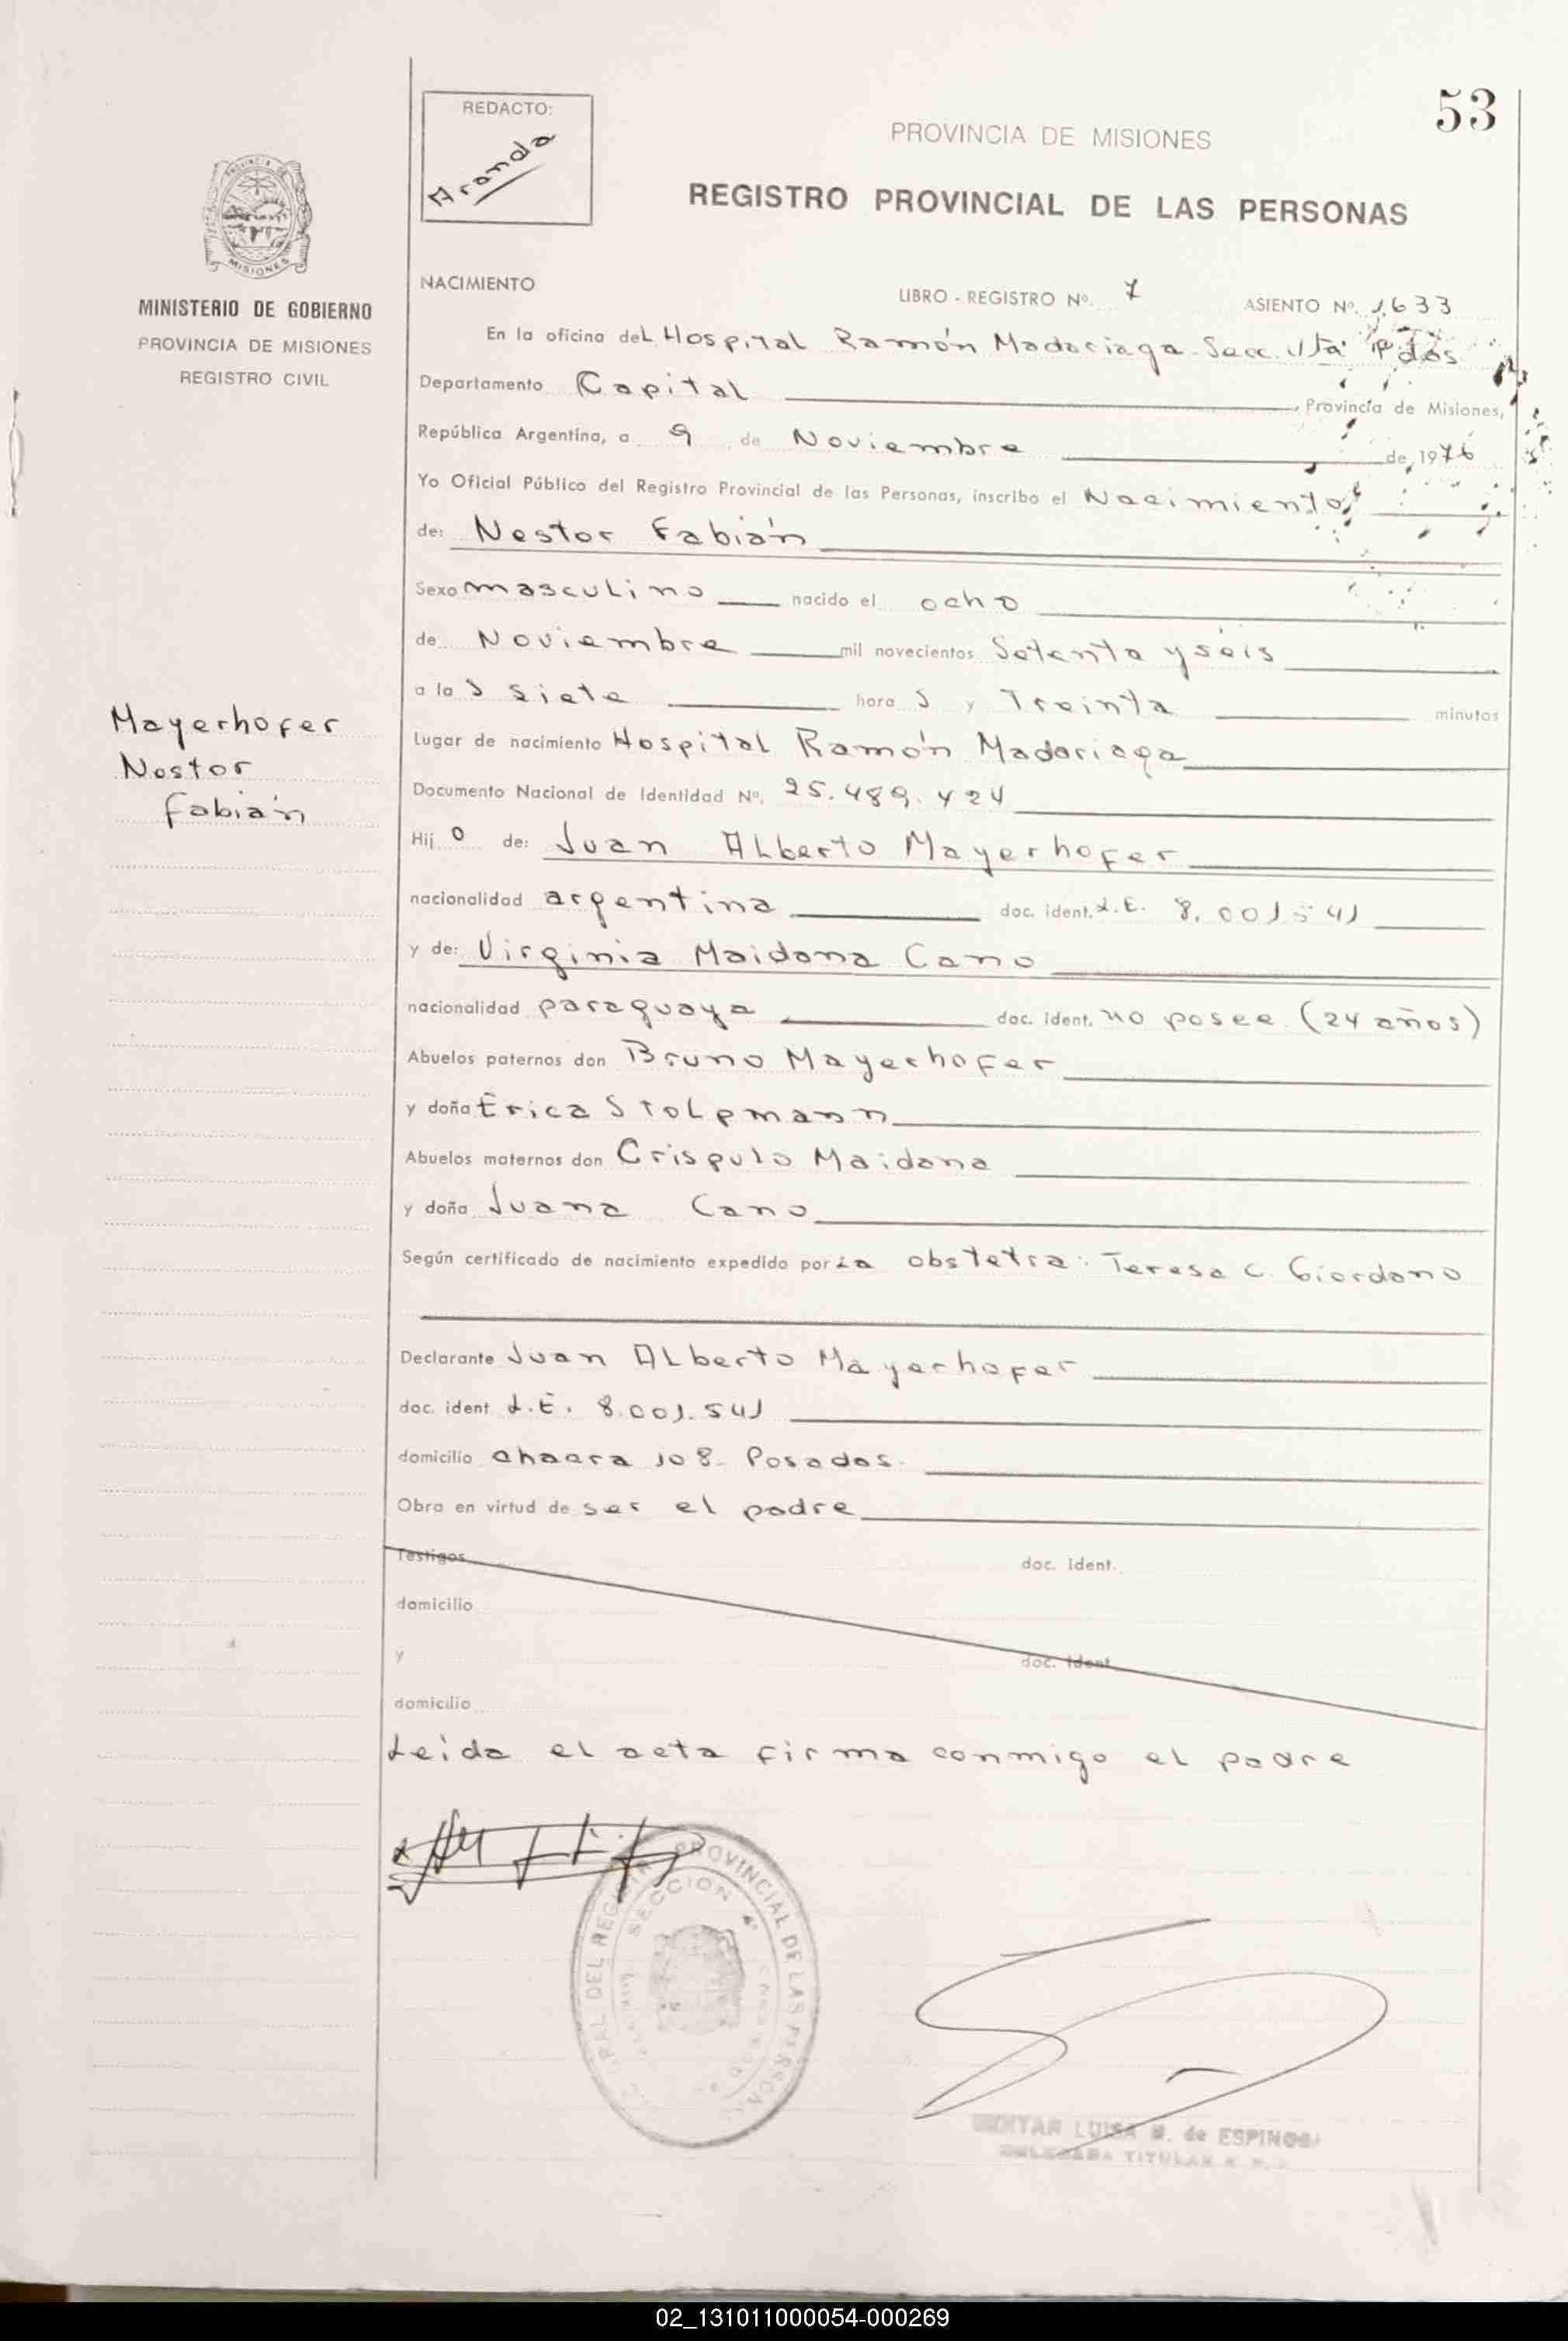 53
REDACTO:
Aranda
PROVINCIA DE MISIONES
REGISTRO PROVINCIAL DE LAS PERSONAS
MISIONES
MINISTERIO DE GOBIERNO
PROVINCIA DE MISIONES
REGISTRO CIVIL
NACIMIENTO
LIBRO - REGISTRO Nº 7 ASIENTO Nº 1633
En la oficina del Hospital Ramón Madariaga - Secc. 4ta Pdas
Departamento Capital, Provincia de Misiones,
República Argentina, a 9 de Noviembre de 1976
Yo Oficial Público del Registro Provincial de las Personas, inscribo el Nacimiento
de: Nestor Fabián
Sexo masculino nacido el ocho
de Noviembre mil novecientos Setenta y seis
a las siete horas y Treinta minutos
Mayerhofer
Nestor
Fabián
Lugar de nacimiento Hospital Ramón Madariaga
Documento Nacional de Identidad Nº. 25.489.424
Hijo de: Juan Alberto Mayerhofer
nacionalidad argentina doc. ident. L.E. 8.001.541
y de: Virginia Maidana Cano
nacionalidad paraguaya doc. ident. no posee (24 años)
Abuelos paternos don Bruno Mayerhofer
y doña Erica Stolpmann
Abuelos maternos don Crispulo Maidana
y doña Juana Cano
Según certificado de nacimiento expedido por la obstetra: Teresa C. Giordano
Declarante Juan Alberto Mayerhofer
doc. ident L.E. 8.001.541
domicilio chacra 108 - Posadas.
Obra en virtud de ser el padre
Testigos doc. ident.
domicilio
y doc. ident
domicilio
Leida el acta firma conmigo el padre
PROVINCIAL DE LAS PERSONAS
SECCION 4ª
LUISA M. de ESPINOSA
TITULAR
02_131011000054-000269